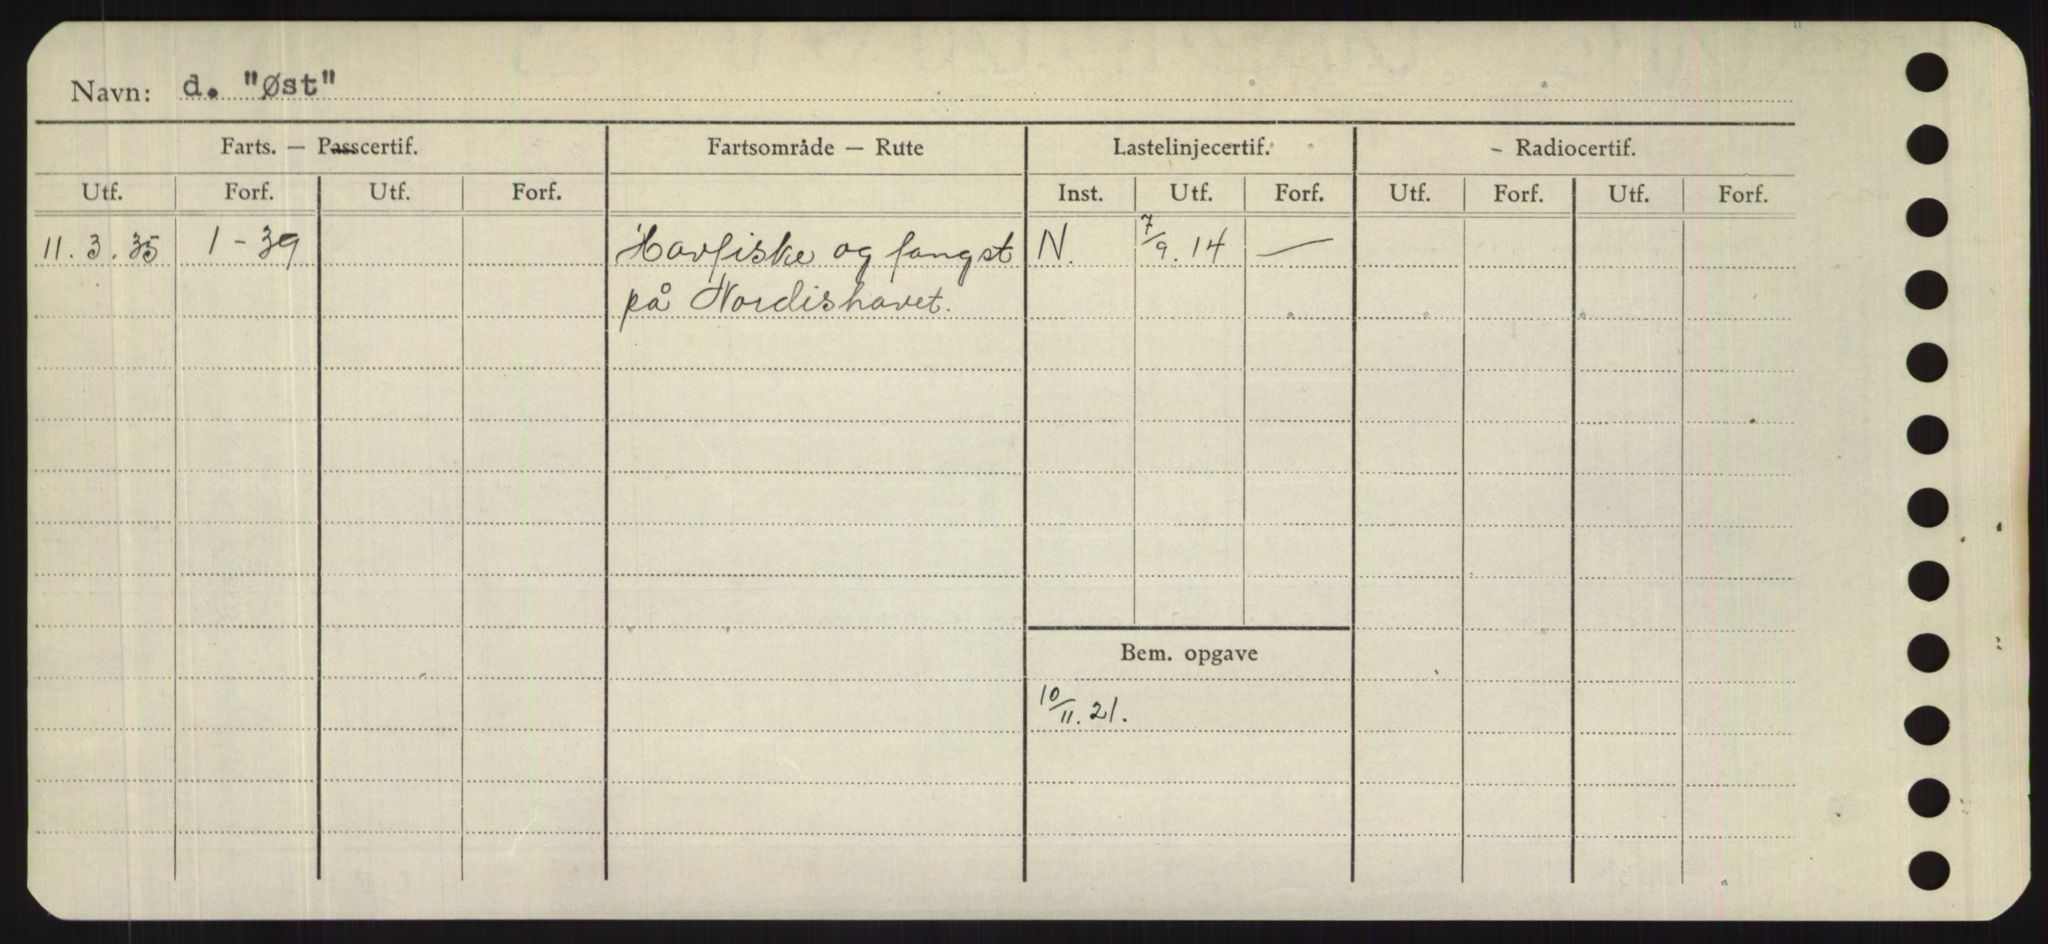 Navn: d. "Øst"
Farts. — Passcertif. Fartsområde — Rute Lastelinjecertif. - Radiocertif.
Utf. Forf. Utf. Forf. Inst. Utf. Forf. Utf. Forf. Utf. Forf.
11.3.35 1-39 Havfiske og fangst N. 7/9.14 —
på Nordishavet.
Bem. opgave
10/11.21.